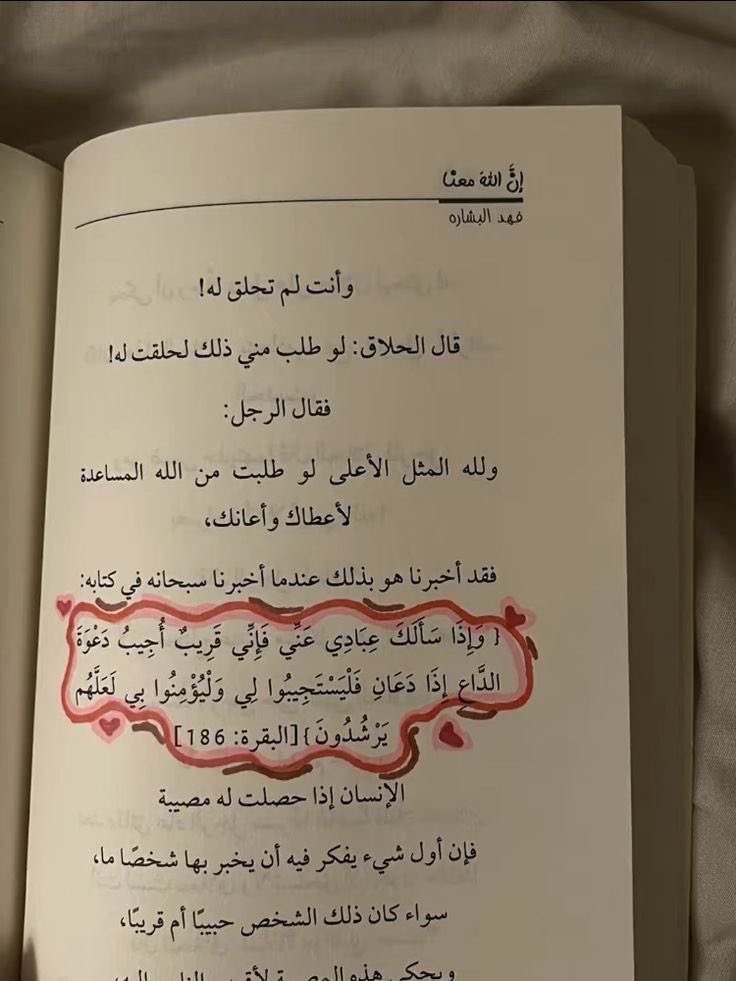 إنَّ اللهَ معنا
فهد البشاره
وأنت لم تحلق له!
قال الحلاق: لو طلب مني ذلك لحلقت له!
فقال الرجل:
ولله المثل الأعلى لو طلبت من الله المساعدة
لأعطاك وأعانك،
فقد أخبرنا هو بذلك عندما أخبرنا سبحانه في كتابه:
{ وَإِذَا سَأَلَكَ عِبَادِي عَنِّي فَإِنِّي قَرِيبٌ أُجِيبُ دَعْوَةَ
الدَّاعِ إِذَا دَعَانِ فَلْيَسْتَجِيبُوا لِي وَلْيُؤْمِنُوا بِي لَعَلَّهُم
يَرْشُدُونَ}[البقرة: 186]
الإنسان إذا حصلت له مصيبة
فإن أول شيء يفكر فيه أن يخبر بها شخصًا ما،
سواء كان ذلك الشخص حبيبًا أم قريبًا،
ويحكي هذه المصيبة لأقرب الناس إليه،